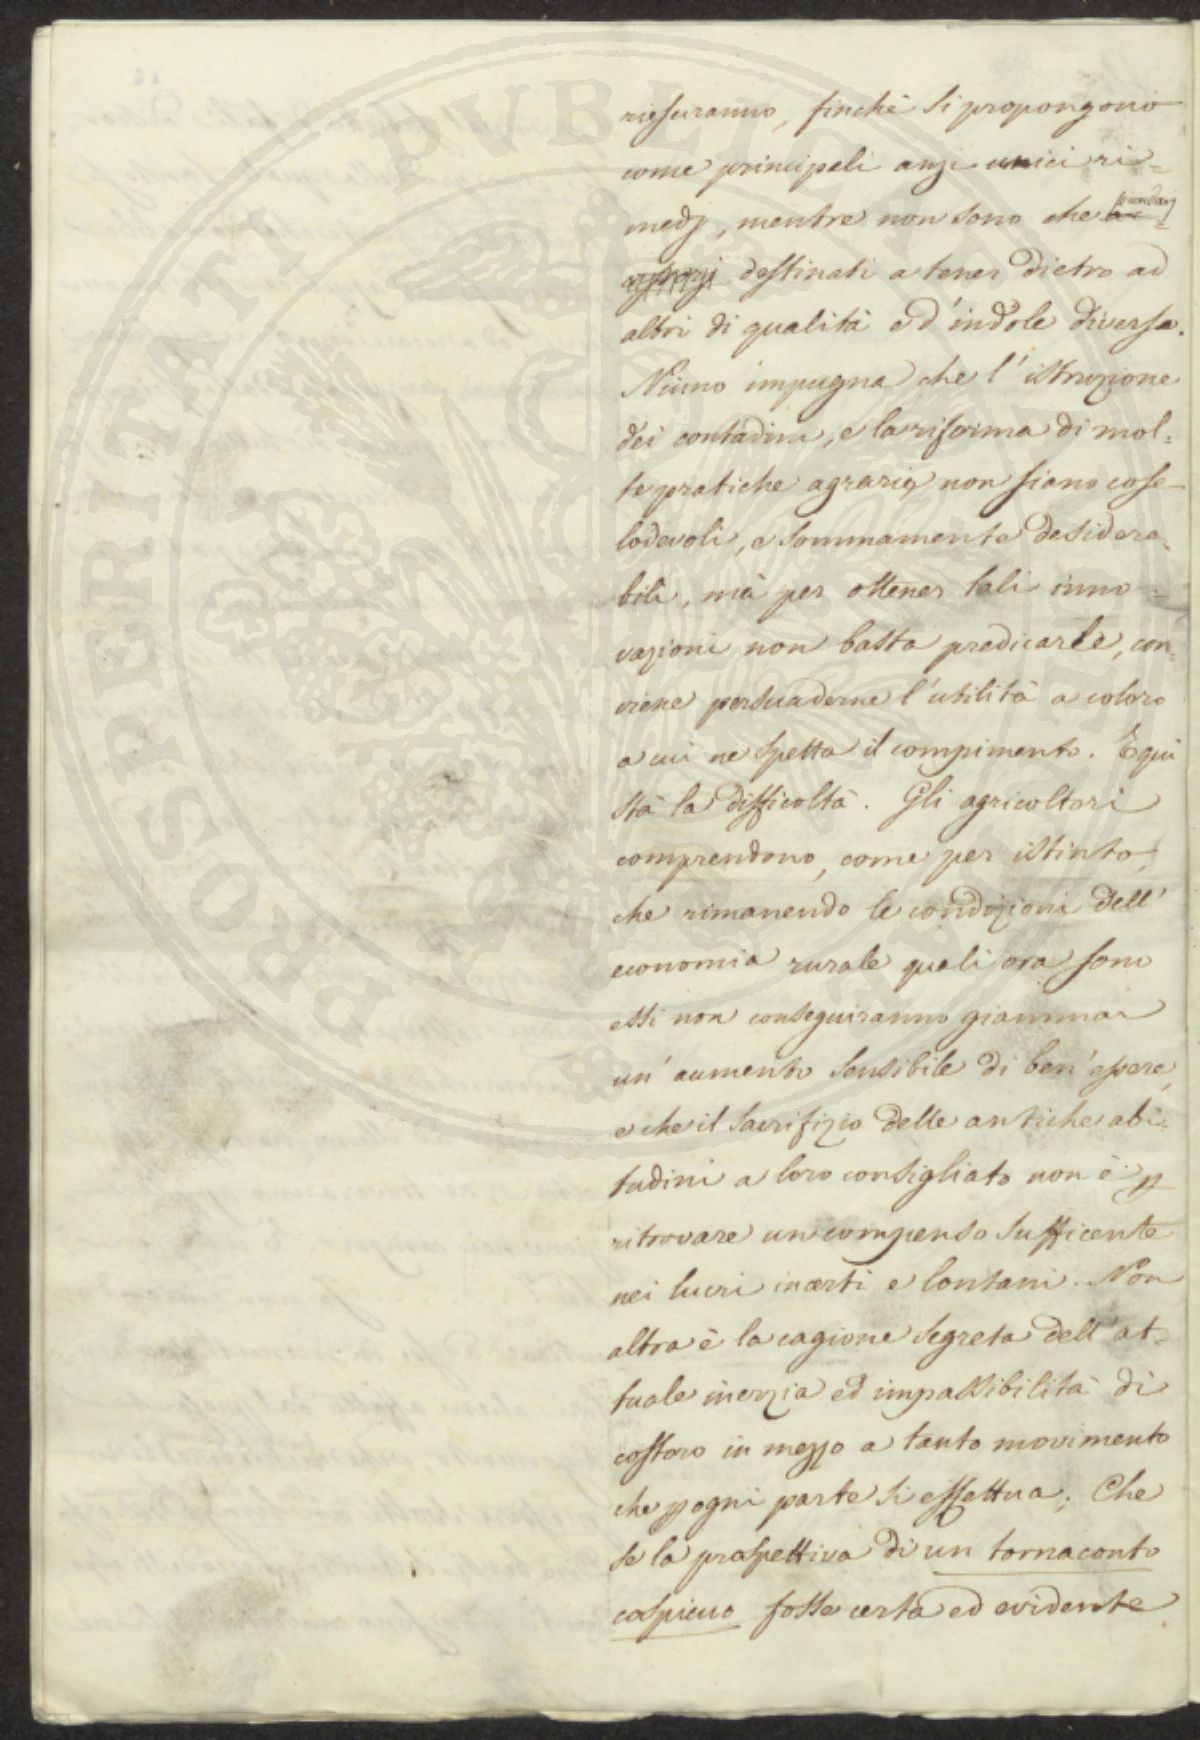 PROSPERITATI PVBLICAE AVGENDAE
riesciranno, finchè si propongono
come principali anzi unici ri=
medj, mentre non sono che
destinati a tener dietro ad
altri di qualità e d'indole diversa.
Niuno impugna che l'istruzione
dei contadini, e la riforma di mol=
te pratiche agrarie, non siano cose
lodevoli, e sommamente desidera=
bili, mà per ottener tali inno=
vazioni non basta predicarle, con=
viene persuaderne l'utilità a coloro
a cui ne spetta il compimento. E qui
stà la difficoltà. Gli agricoltori
comprendono, come per istinto,
che rimanendo le condizioni dell'
economia rurale quali ora sono
essi non conseguiranno giammai
un'aumento sensibile di ben'essere,
e che il sacrifizio delle antiche abi=
tudini a loro consigliato non è p
ritrovare un compenso sufficente
nei lucri incerti e lontani. Non
altra è la cagione segreta dell'at=
tuale inerzia ed impassibilità di
costoro in mezzo a tanto movimento
che p ogni parte si effettua. Che
se la prospettiva di un tornaconto
cospicuo fosse certa ed evidente